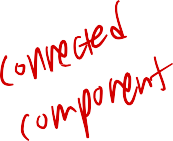 connected
component